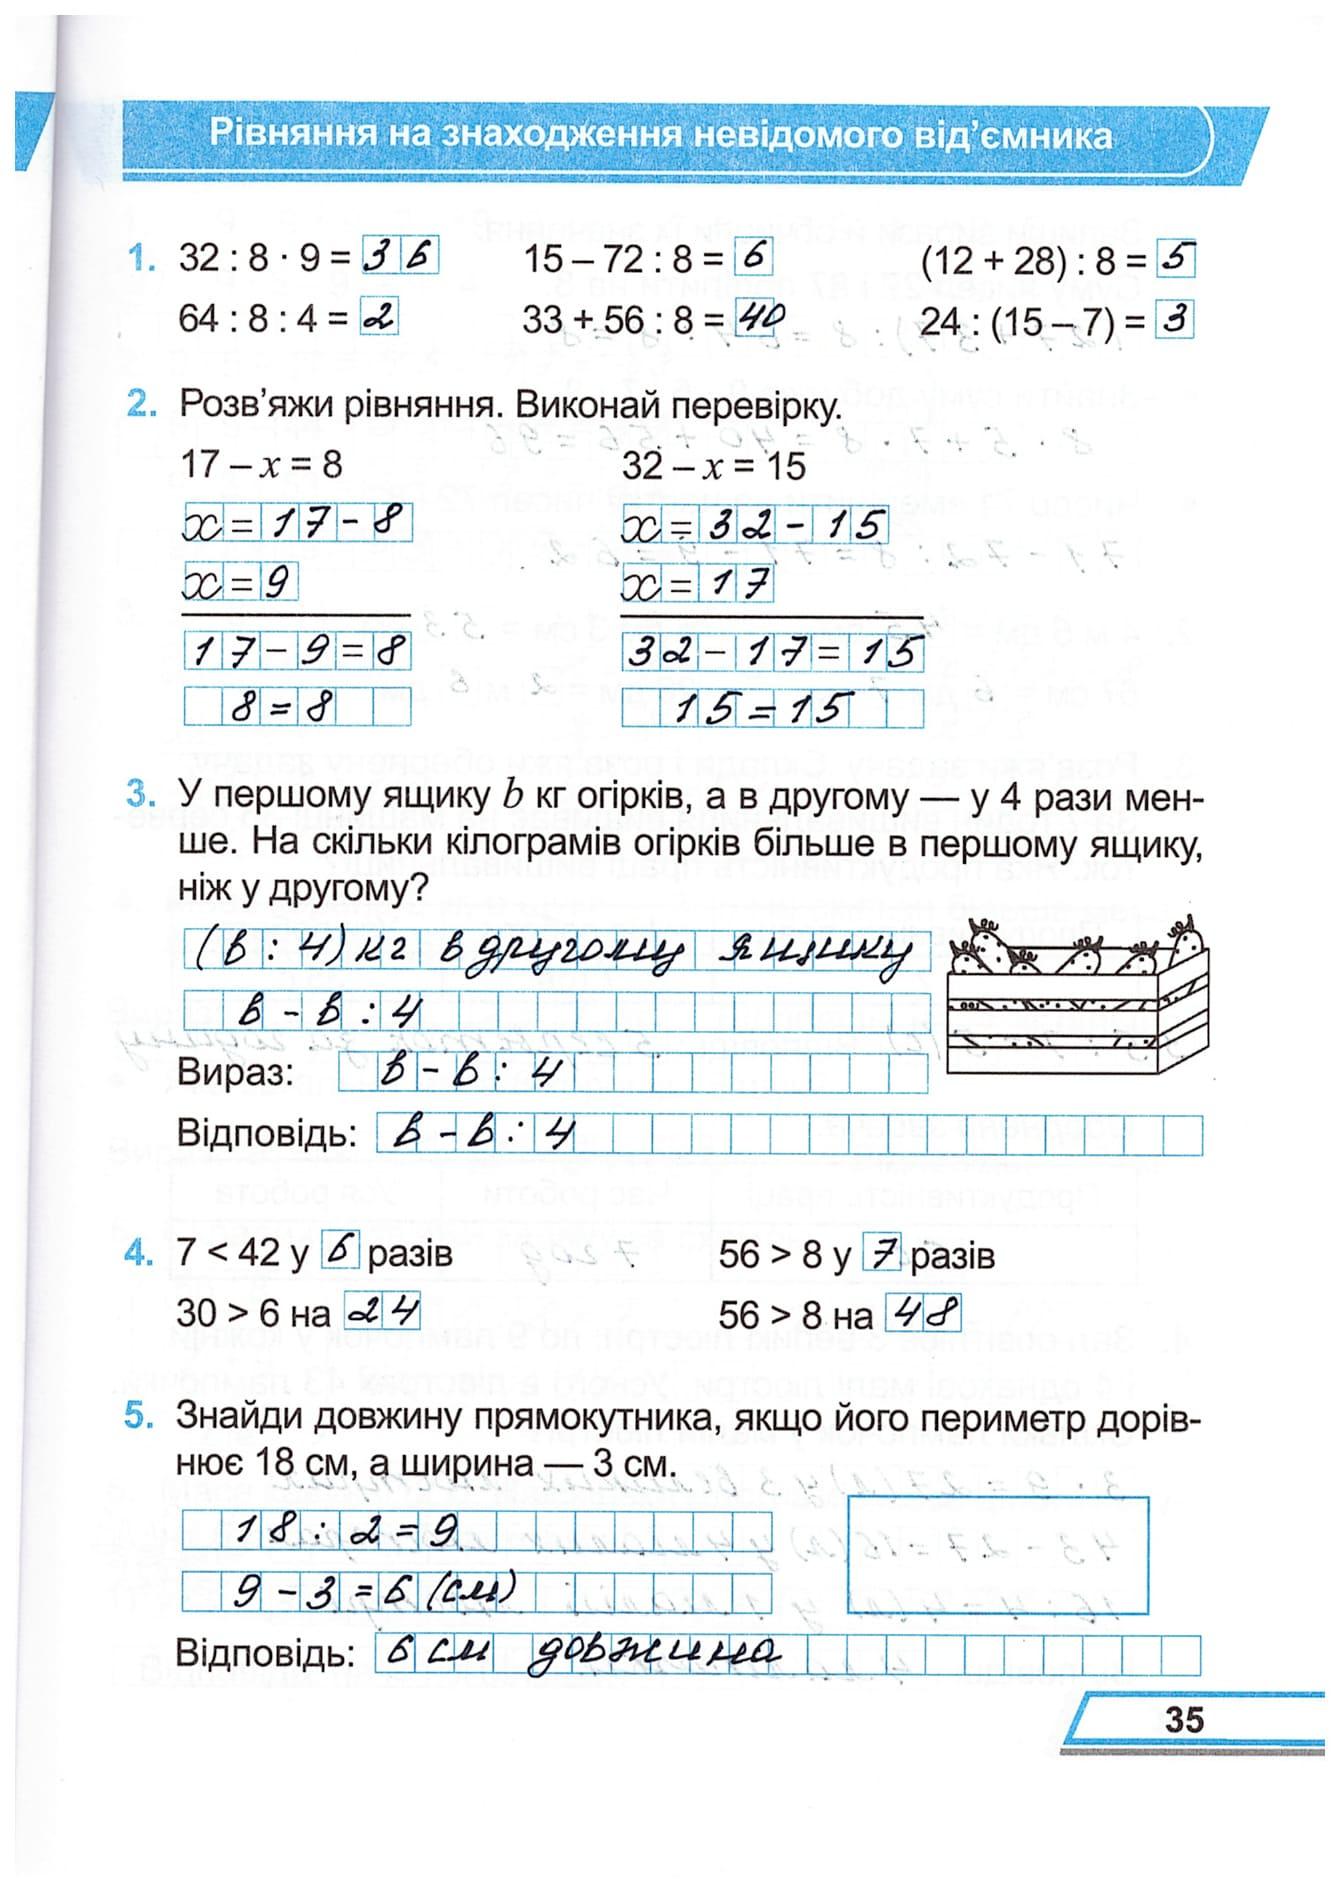 Рівняння на знаходження невідомого від’ємника
1. 32 : 8 · 9 = 36   15 – 72 : 8 = 6   (12 + 28) : 8 = 5
64 : 8 : 4 = 2   33 + 56 : 8 = 40   24 : (15 – 7) = 3
2. Розв’яжи рівняння. Виконай перевірку.
17 – x = 8   32 – x = 15
x = 17 - 8   x = 32 - 15
x = 9   x = 17
17 - 9 = 8   32 - 17 = 15
8 = 8   15 = 15
3. У першому ящику b кг огірків, а в другому — у 4 рази мен-
ше. На скільки кілограмів огірків більше в першому ящику,
ніж у другому?
(в : 4) кг в другому ящику
в - в : 4
Вираз: в - в : 4
Відповідь: в - в : 4
4. 7 < 42 у 6 разів   56 > 8 у 7 разів
30 > 6 на 24   56 > 8 на 48
5. Знайди довжину прямокутника, якщо його периметр дорів-
нює 18 см, а ширина — 3 см.
18 : 2 = 9
9 - 3 = 6 (см)
Відповідь: 6 см довжина
35